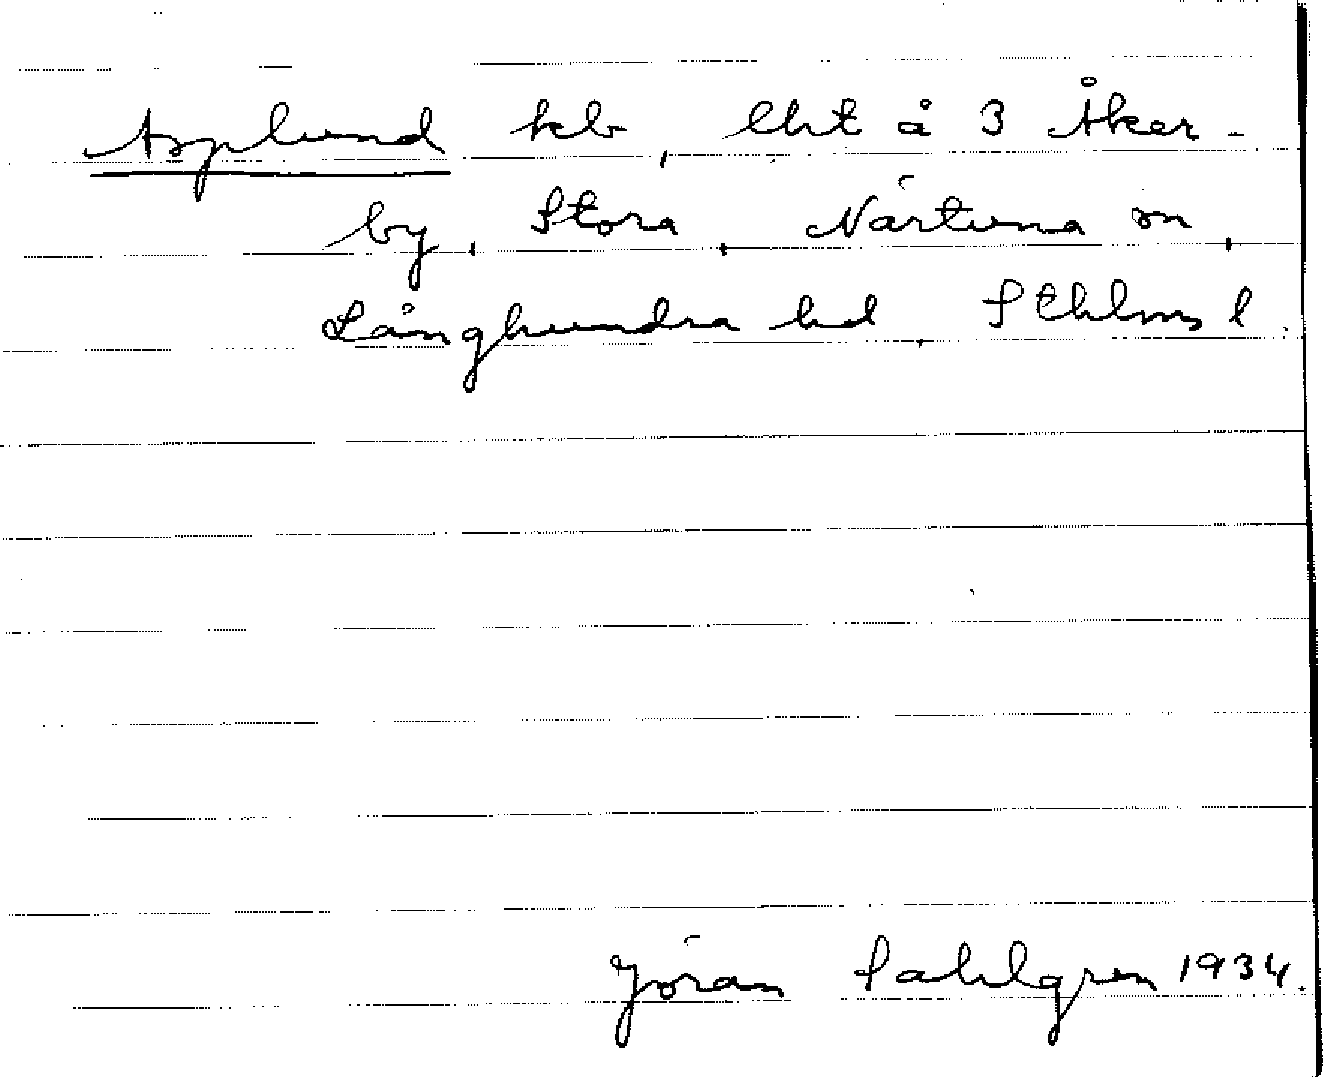 Asplund kb, lht å 3 Åker-
by, Stora, Närtuna sn,
Långhundra hd, Sthlms l.
Jöran Sahlgren 1934.